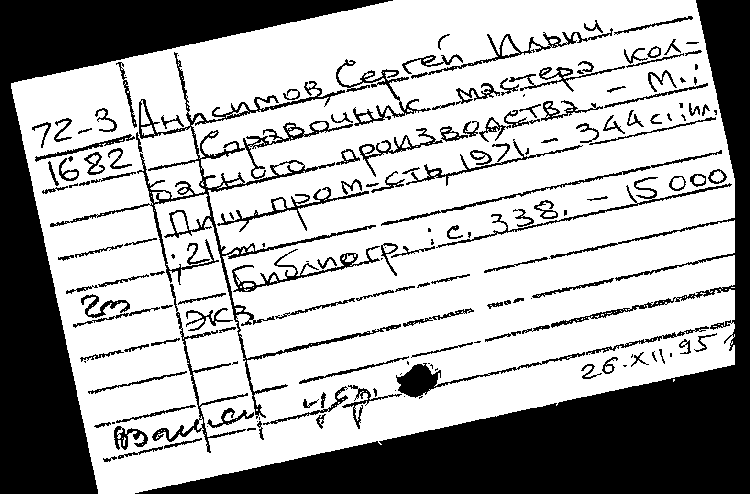 72-3 Анисимов, Сергей Ильич.
1682 Справочник мастера кол-
басного производства. – М.:
Пищ. пром-сть, 1971. – 344 с.: ил.
; 21 см.
Библиогр.: с. 338. – 15000
экз
2т
26.XII.95